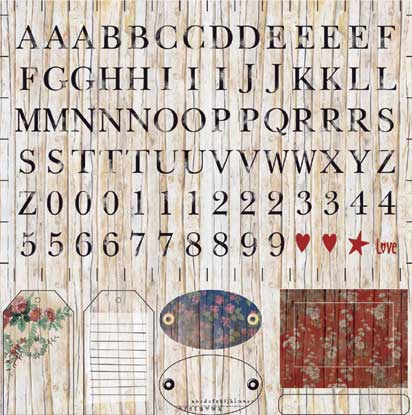 AAABBCCDDEEEEF
FGGHHIIIJJKKLL
MMNNNOOPPQRRRS
SSTTTUUVVWWXYZ
Z0001112223344
5566778899 Love